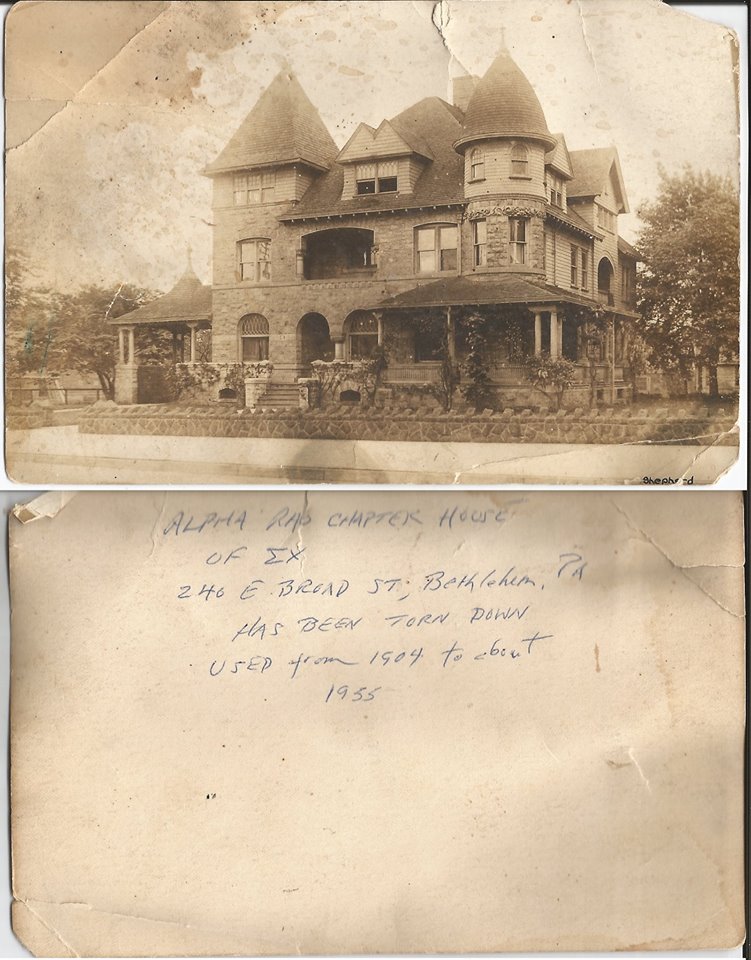 Shepherd
ALPHA RHO CHAPTER HOUSE
OF ΣX
240 E BROAD ST; Bethlehem, PA
HAS BEEN TORN DOWN
USED from 1904 to about
1955